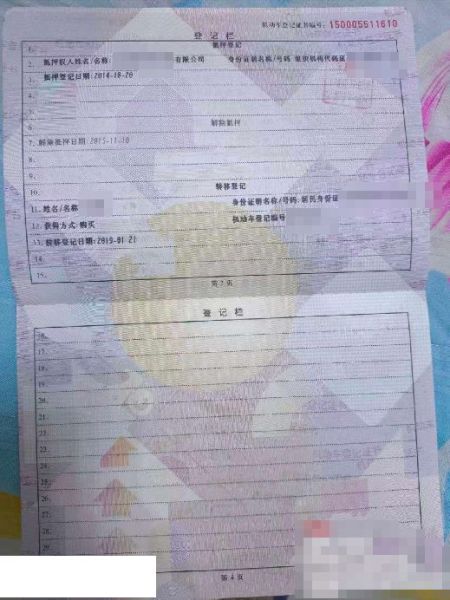 机动车登记证书编号: 150005611610
登记栏
1. 抵押登记
2. 抵押权人姓名/名称 有限公司 身份证明名称/号码 组织机构代码证
3. 抵押登记日期:2014-10-20
4.
5.
6. 解除抵押
7. 解除抵押日期:2015-11-10
8.
9.
10. 转移登记
11. 姓名/名称 身份证明名称/号码 居民身份证
12. 获得方式:购买 机动车登记编号
13. 转移登记日期:2019-01-21
14.
15.
第 3 页
登记栏
16.
17.
18.
19.
20.
21.
22.
23.
24.
25.
26.
27.
28.
29.
第 4 页